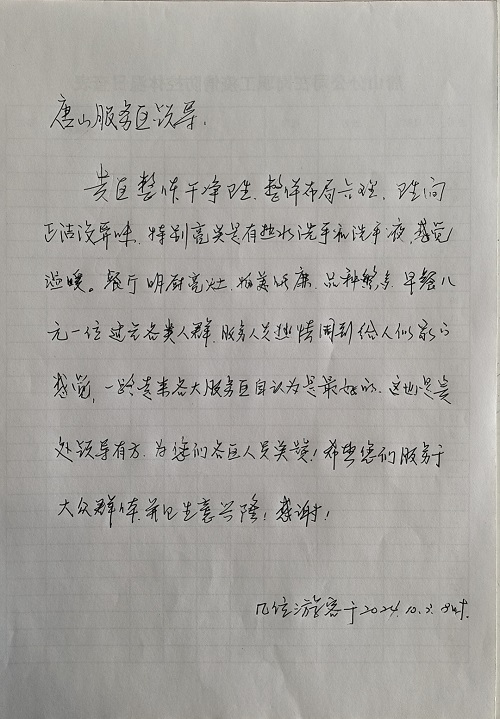 唐山服务区领导.
贵区整体干净卫生.整体布局合理.卫生间
正洁没异味.特别亮点是有热水洗手和洗手液,感觉
温暖。餐厅明厨亮灶.物美价廉.品种繁多.早餐八
元一位适合各类人群.服务人员热情周到给人似家的
感觉,一路走来各大服务区自认为是最好的.这也是贵
处领导有方.为您们各区人员点赞!希望您们服务于
大众群体.并己生意兴隆!感谢!
几位游客于2024.10.2.